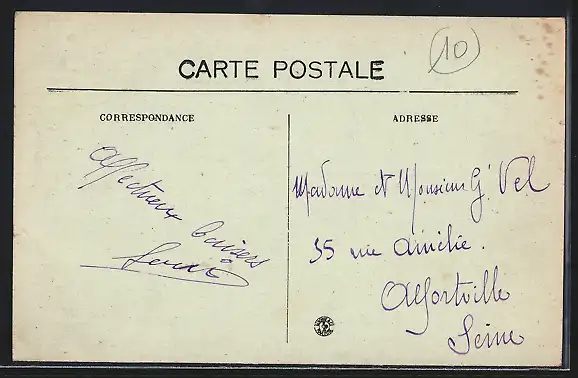 10
CARTE POSTALE
CORRESPONDANCE
ADRESSE
Affectueux baisers
Madame et Monsieur G. Vel
35 rue Amélie.
Alfortville
Seine